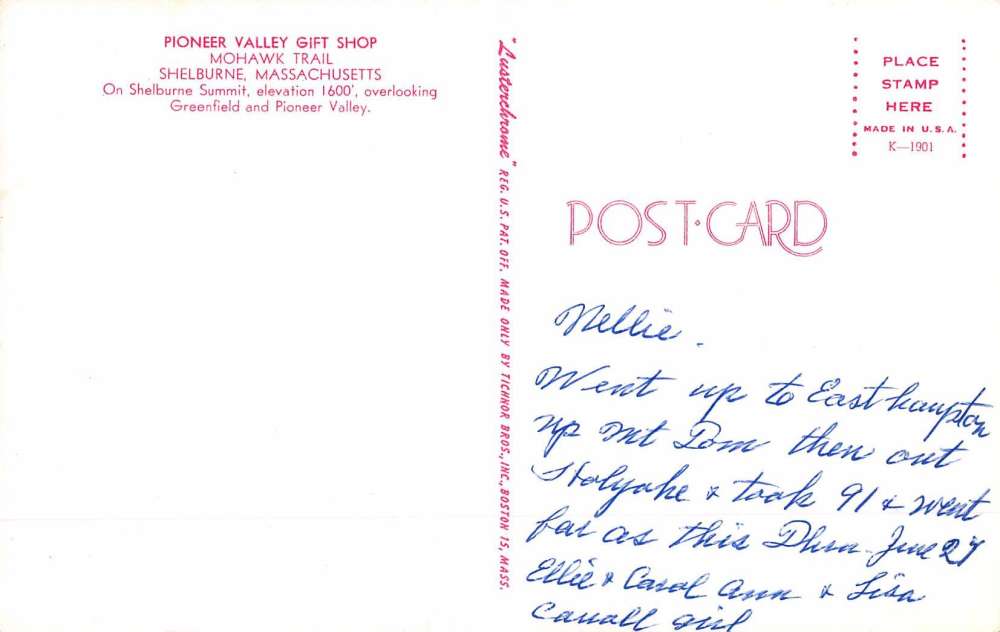 PIONEER VALLEY GIFT SHOP
MOHAWK TRAIL
SHELBURNE, MASSACHUSETTS
On Shelburne Summit, elevation 1600', overlooking
Greenfield and Pioneer Valley.
"Lusterchrome" REG. U.S. PAT. OFF. MADE ONLY BY TICHNOR BROS., INC., BOSTON 15, MASS.
PLACE
STAMP
HERE
MADE IN U.S.A.
K—1901
POST CARD
Nellie.
Went up to Easthampton
up Mt Tom then out
Holyoke & took 91 & went
far as this June 27
Ellie & Carol Ann & Lisa
girl